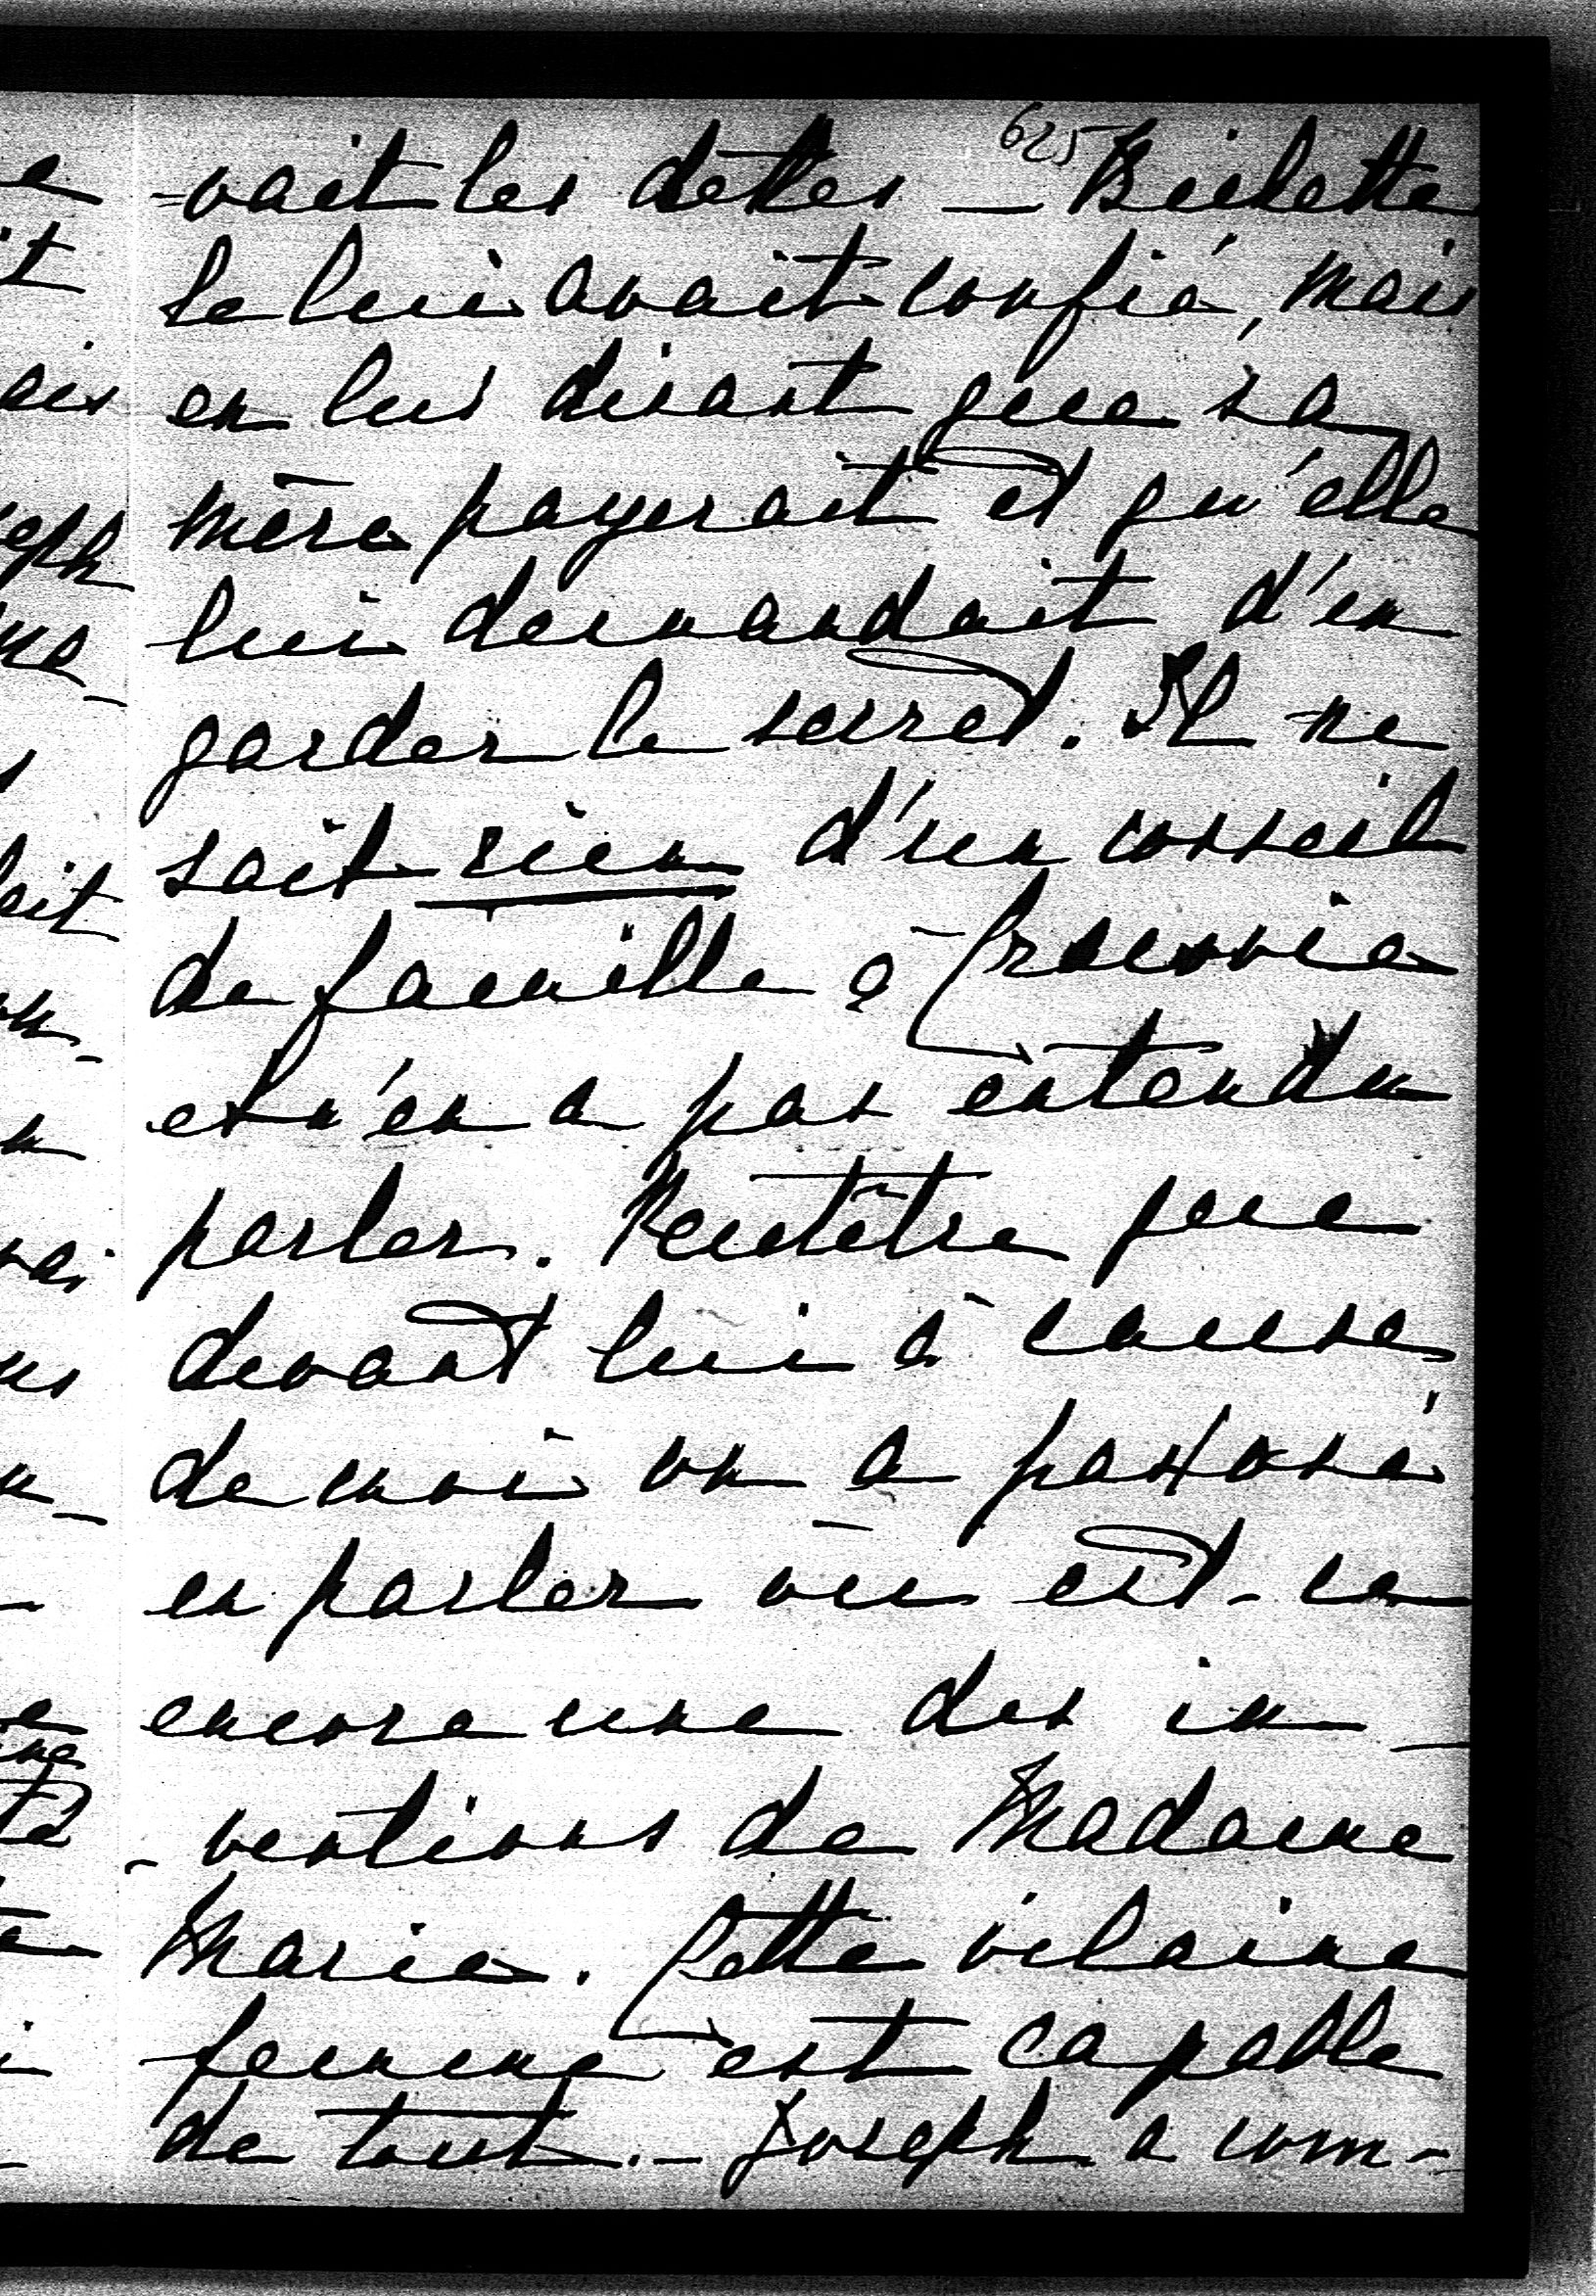 625
-vait les dettes — Bichette
le lui avait confié, mais
en lui disant que sa
mère payerait et qu'elle
lui demandait d'en
garder le secret. Il ne
sait rien d'un conseil
de famille à Cracovie
et n'en a pas entendu
parler. Peutêtre que
devant lui à cause
de moi on a pas osé
en parler où est-ce
encore une des in-
-ventions de Madame
Marie. Cette vilaine
femme est capable
de tout. — Joseph a com-